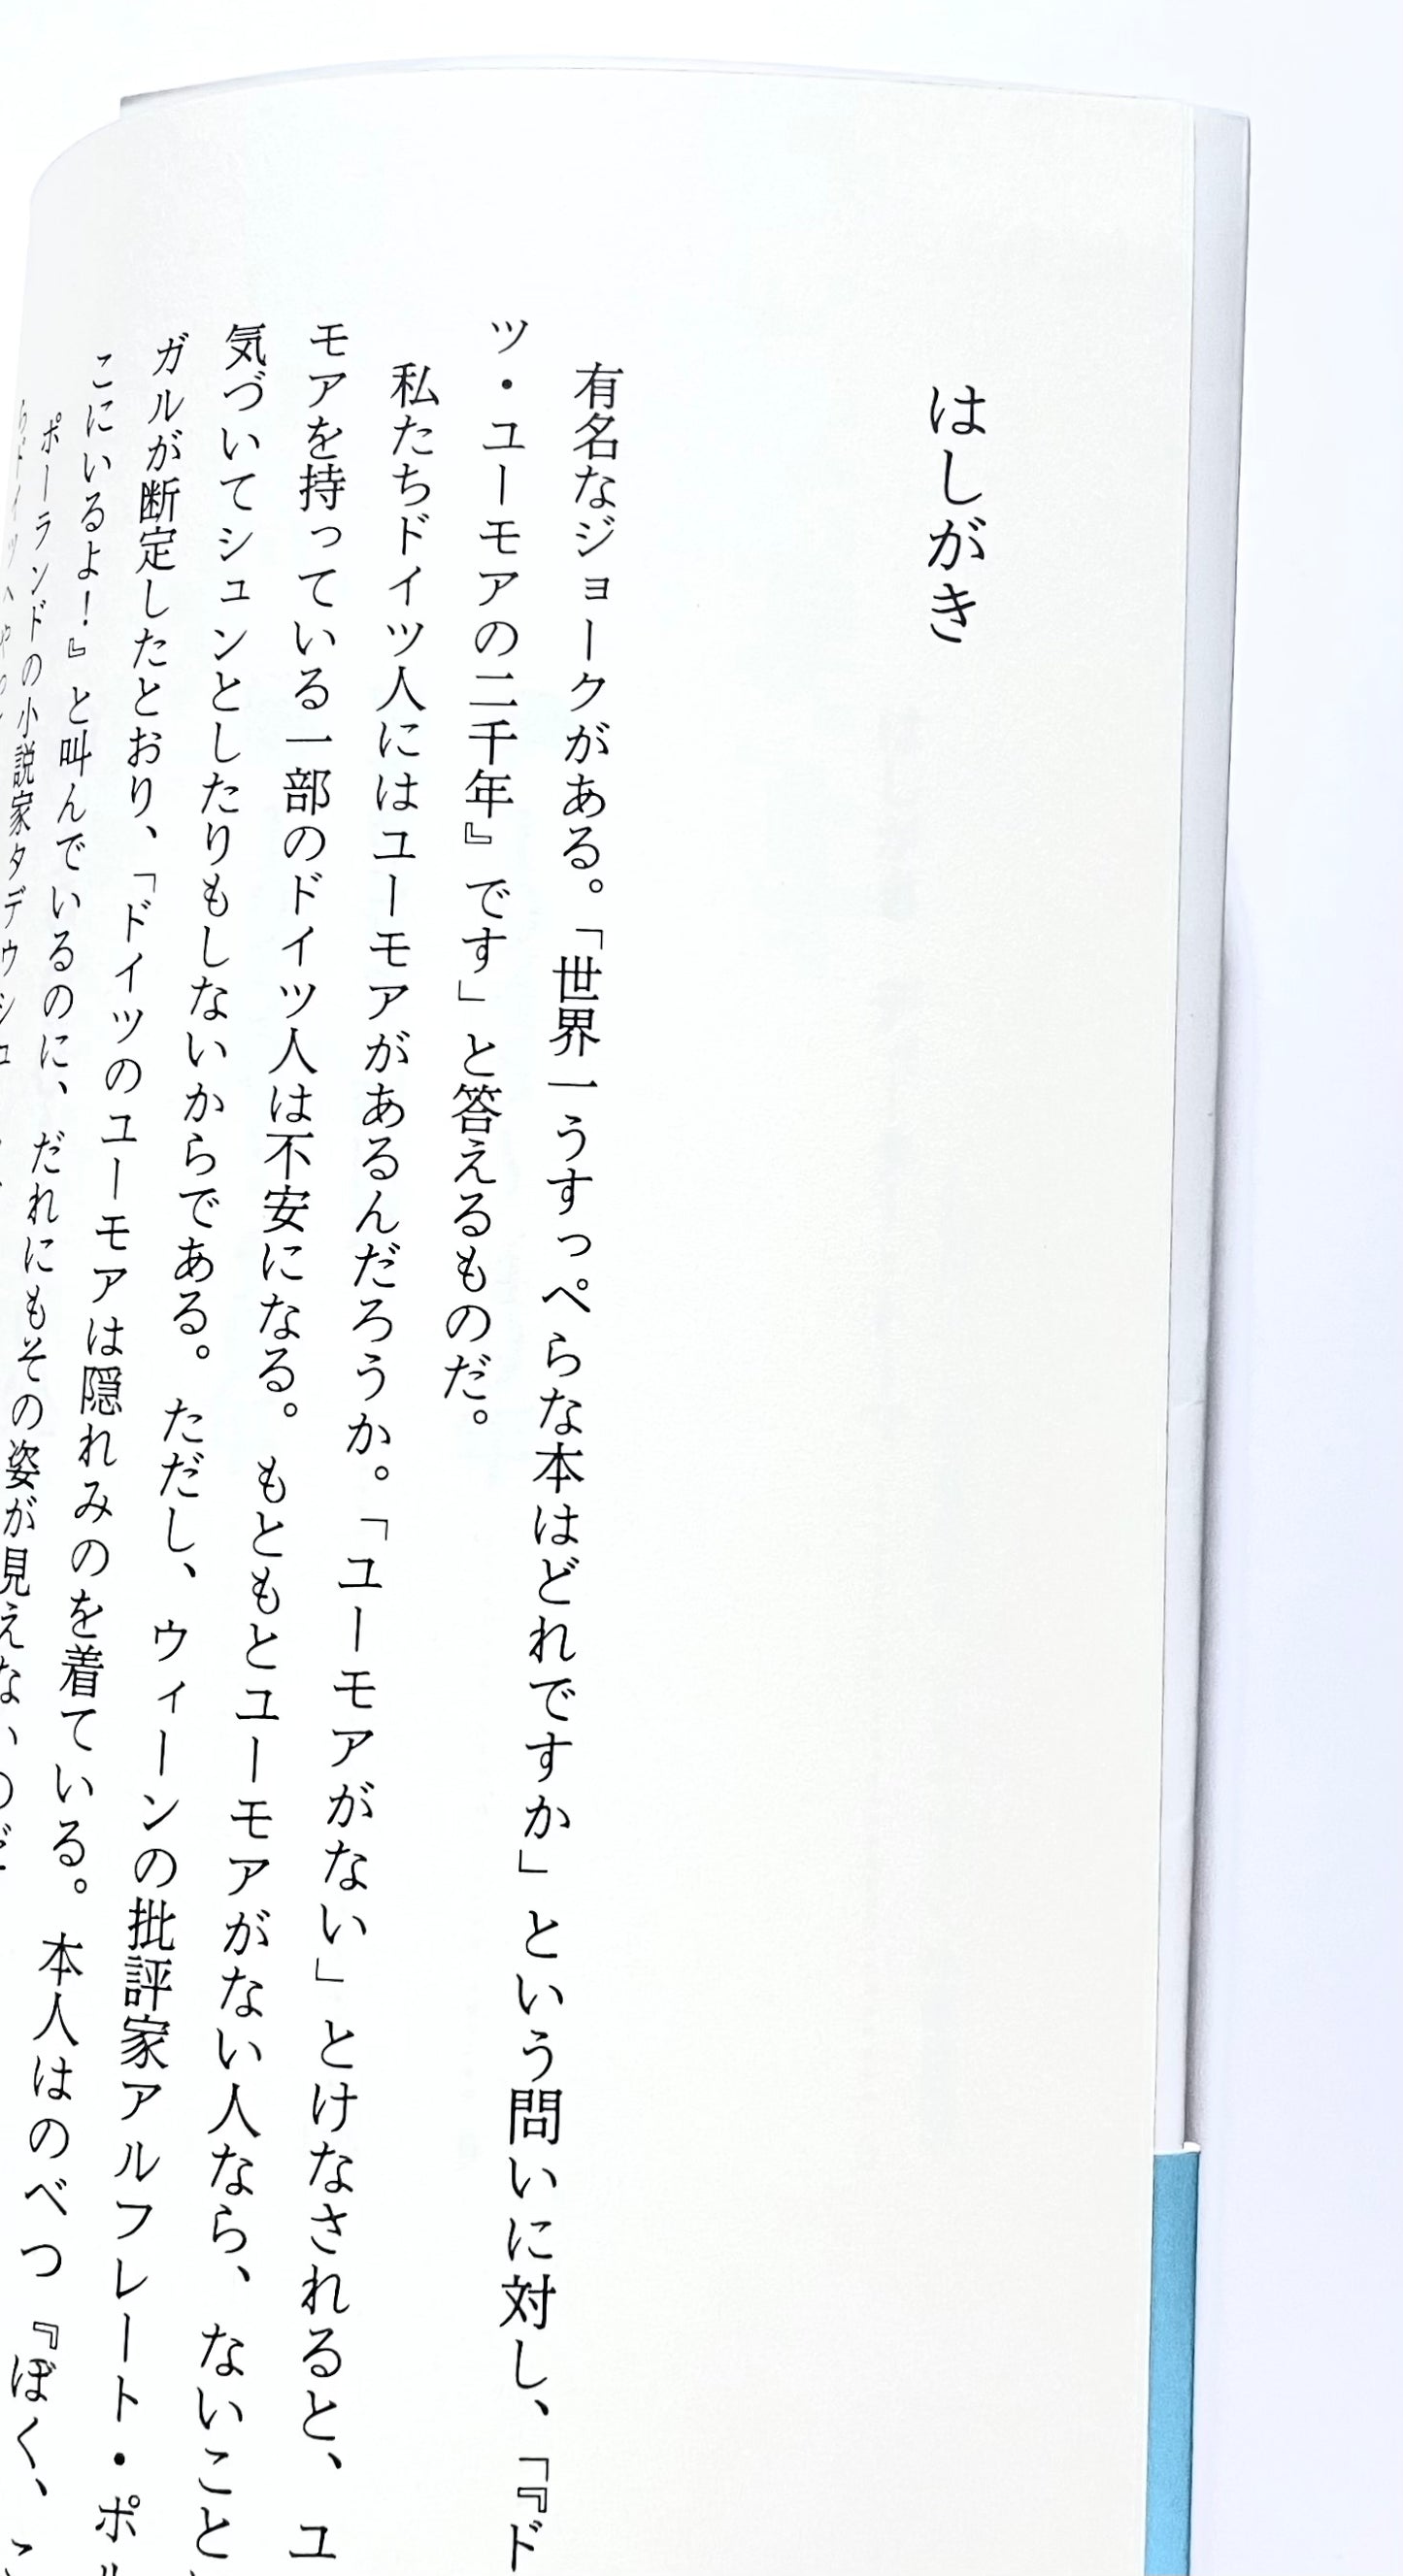 はしがき
有名なジョークがある。「世界一うすっぺらな本はどれですか」という問いに対し、「『ド
ツ・ユーモアの二千年』です」と答えるものだ。
私たちドイツ人にはユーモアがあるんだろうか。「ユーモアがない」とけなされると、ユ
モアを持っている一部のドイツ人は不安になる。もともとユーモアがない人なら、ないこと
気づいてシュンとしたりもしないからである。ただし、ウィーンの批評家アルフレート・ポル
ガルが断定したとおり、「ドイツのユーモアは隠れみのを着ている。本人はのべつ『ぼく、こ
こにいるよ!』と叫んでいるのに、だれにもその姿が見えない
ポーランドの小説家タデウシュ
らドイツへ